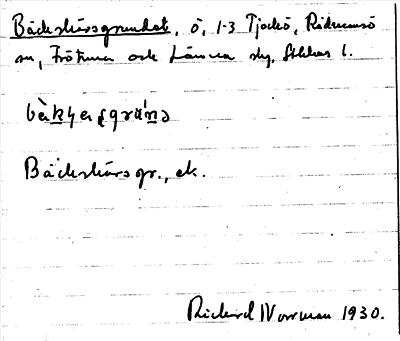 Bäckskärsgrundet, ö, 1-3 Tjockö, Rådmansö
sn, Frötuna och Länna skg, Sthlms l.
Bäckskärsgr., ek.
Richard Norrman 1930.